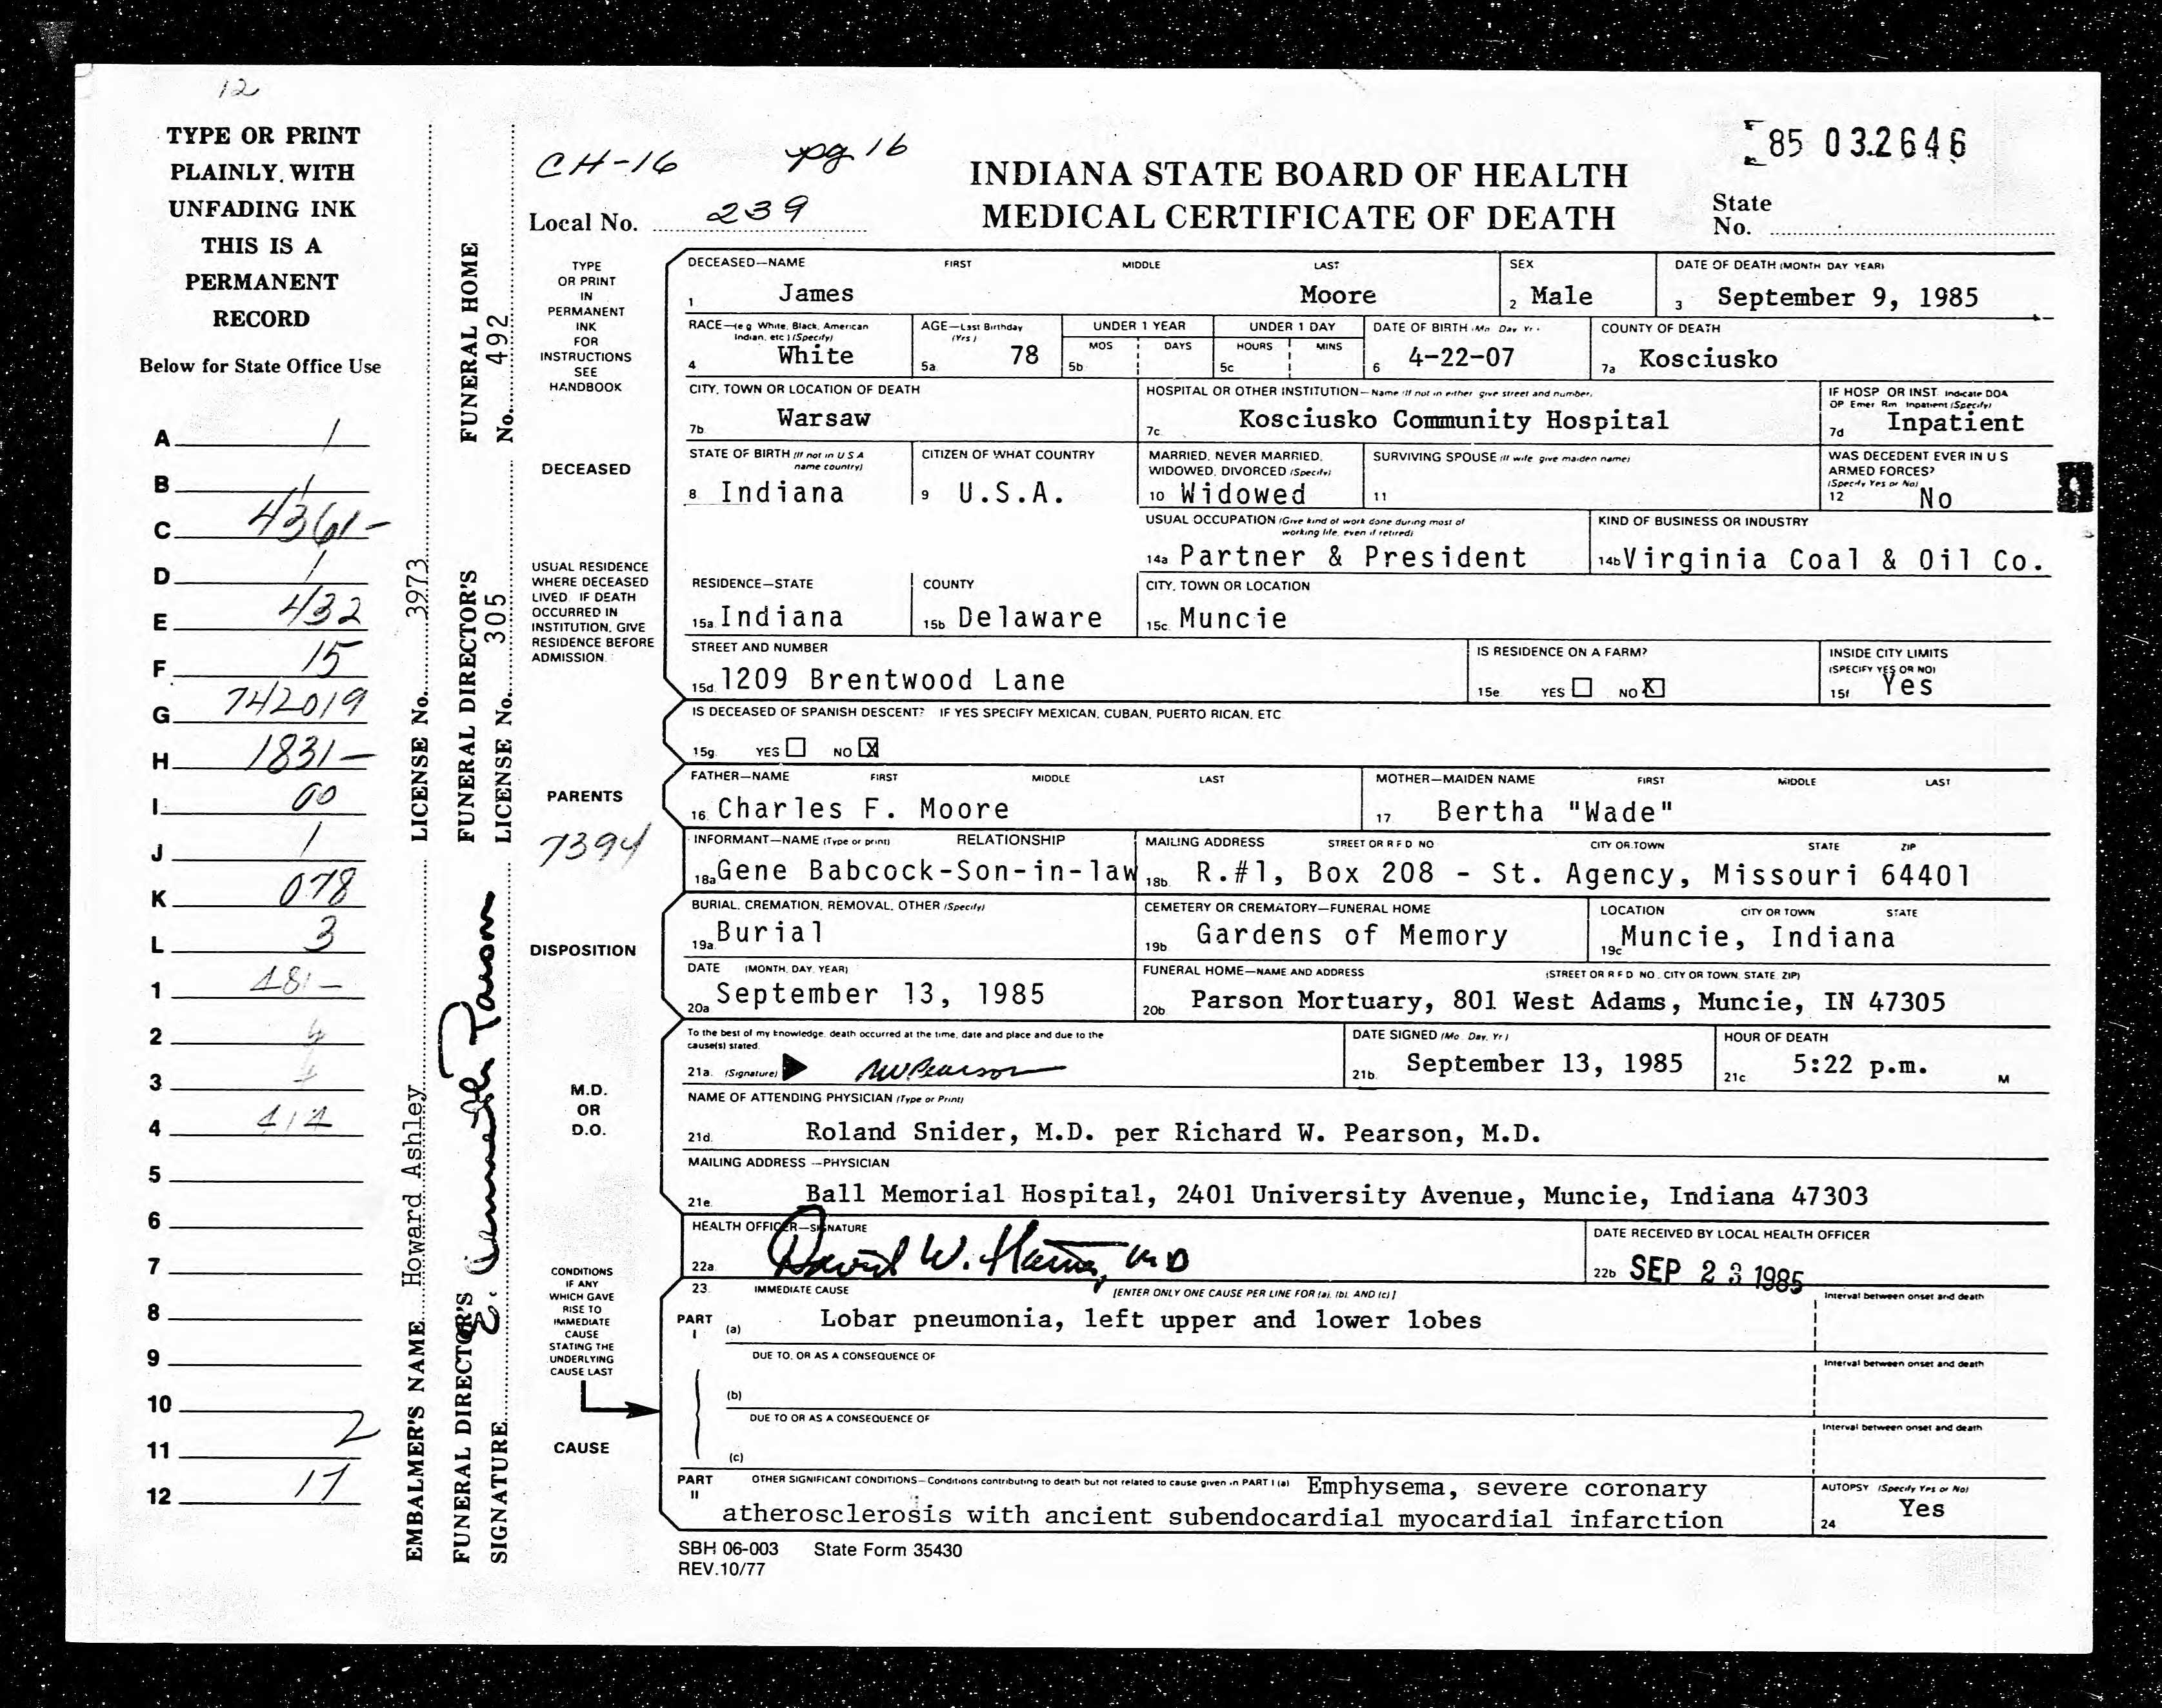 12
TYPE OR PRINT
PLAINLY, WITH
UNFADING INK
THIS IS A
PERMANENT
RECORD
Below for State Office Use
A 1
B 1
C 4361-
D 1
E 432
F 15
G 742019
H 1831-
I 00
J 1
K 078
L 3
1 481-
2
3
4 414
5
6
7
8
9
10
11 2
12 17
EMBALMER'S NAME Howard Ashley LICENSE No. 3973
FUNERAL DIRECTOR'S FUNERAL DIRECTOR'S FUNERAL HOME
SIGNATURE E. Kenneth Parson LICENSE No. 305 No. 492
CH-16 pg 16
Local No. 239
INDIANA STATE BOARD OF HEALTH
MEDICAL CERTIFICATE OF DEATH
85 032646
State
No.
TYPE
OR PRINT
IN
PERMANENT
INK
FOR
INSTRUCTIONS
SEE
HANDBOOK
DECEASED—NAME FIRST MIDDLE LAST SEX DATE OF DEATH (MONTH DAY YEAR)
1 James Moore 2 Male 3 September 9, 1985
RACE—(e g White, Black, American Indian, etc.) (Specify) AGE—Last Birthday (Yrs) UNDER 1 YEAR UNDER 1 DAY DATE OF BIRTH (Mo Day Yr) COUNTY OF DEATH
MOS DAYS HOURS MINS
4 White 5a 78 5b 5c 6 4-22-07 7a Kosciusko
CITY, TOWN OR LOCATION OF DEATH HOSPITAL OR OTHER INSTITUTION—Name (If not in either give street and number) IF HOSP OR INST. Indicate DOA OP Emer Rm Inpatient (Specify)
7b Warsaw 7c Kosciusko Community Hospital 7d Inpatient
DECEASED
STATE OF BIRTH (If not in U S A name country) CITIZEN OF WHAT COUNTRY MARRIED, NEVER MARRIED, WIDOWED, DIVORCED (Specify) SURVIVING SPOUSE (If wife give maiden name) WAS DECEDENT EVER IN U S ARMED FORCES? (Specify Yes or No)
8 Indiana 9 U.S.A. 10 Widowed 11 12 No
USUAL OCCUPATION (Give kind of work done during most of working life, even if retired) KIND OF BUSINESS OR INDUSTRY
14a Partner & President 14b Virginia Coal & Oil Co.
USUAL RESIDENCE
WHERE DECEASED
LIVED. IF DEATH
OCCURRED IN
INSTITUTION, GIVE
RESIDENCE BEFORE
ADMISSION
RESIDENCE—STATE COUNTY CITY, TOWN OR LOCATION
15a Indiana 15b Delaware 15c Muncie
STREET AND NUMBER IS RESIDENCE ON A FARM? INSIDE CITY LIMITS (SPECIFY YES OR NO)
15d 1209 Brentwood Lane 15e YES NO X 15f Yes
IS DECEASED OF SPANISH DESCENT? IF YES SPECIFY MEXICAN, CUBAN, PUERTO RICAN, ETC
15g YES NO X
PARENTS
7394
FATHER—NAME FIRST MIDDLE LAST MOTHER—MAIDEN NAME FIRST MIDDLE LAST
16 Charles F. Moore 17 Bertha "Wade"
INFORMANT—NAME (Type or print) RELATIONSHIP MAILING ADDRESS STREET OR R F D NO CITY OR TOWN STATE ZIP
18a Gene Babcock-Son-in-law 18b R.#1, Box 208 - St. Agency, Missouri 64401
DISPOSITION
BURIAL, CREMATION, REMOVAL, OTHER (Specify) CEMETERY OR CREMATORY—FUNERAL HOME LOCATION CITY OR TOWN STATE
19a Burial 19b Gardens of Memory 19c Muncie, Indiana
DATE (MONTH, DAY, YEAR) FUNERAL HOME—NAME AND ADDRESS (STREET OR R F D NO., CITY OR TOWN, STATE, ZIP)
20a September 13, 1985 20b Parson Mortuary, 801 West Adams, Muncie, IN 47305
M.D.
OR
D.O.
To the best of my knowledge, death occurred at the time, date and place and due to the cause(s) stated. DATE SIGNED (Mo Day, Yr) HOUR OF DEATH
21a. (Signature) RWPearson 21b. September 13, 1985 21c 5:22 p.m. M
NAME OF ATTENDING PHYSICIAN (Type or Print)
21d. Roland Snider, M.D. per Richard W. Pearson, M.D.
MAILING ADDRESS —PHYSICIAN
21e Ball Memorial Hospital, 2401 University Avenue, Muncie, Indiana 47303
HEALTH OFFICER—SIGNATURE DATE RECEIVED BY LOCAL HEALTH OFFICER
22a David W. MD 22b SEP 23 1985
CONDITIONS
IF ANY
WHICH GAVE
RISE TO
IMMEDIATE
CAUSE
STATING THE
UNDERLYING
CAUSE LAST
CAUSE
23. IMMEDIATE CAUSE [ENTER ONLY ONE CAUSE PER LINE FOR (a), (b), AND (c)] Interval between onset and death
PART I (a) Lobar pneumonia, left upper and lower lobes
DUE TO, OR AS A CONSEQUENCE OF Interval between onset and death
(b)
DUE TO OR AS A CONSEQUENCE OF Interval between onset and death
(c)
PART II OTHER SIGNIFICANT CONDITIONS—Conditions contributing to death but not related to cause given in PART I (a) Emphysema, severe coronary
atherosclerosis with ancient subendocardial myocardial infarction
AUTOPSY (Specify Yes or No)
24 Yes
SBH 06-003 State Form 35430
REV.10/77